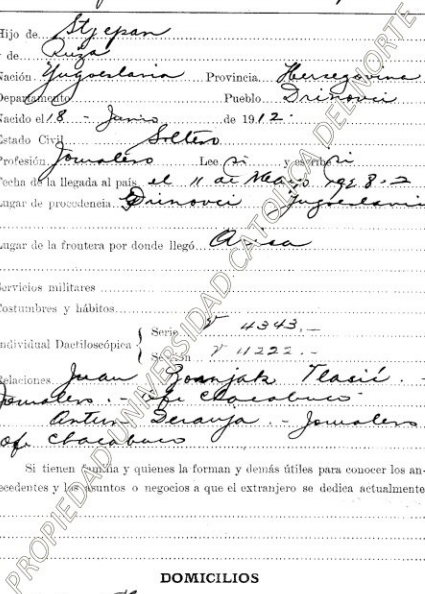 Hijo de Stjepan
y de Ruza
Nación Yugoeslavia Provincia Hersegovina
Departamento Pueblo Drinovci
Nacido el 18 - Junio de 1912.
Estado Civil Soltero
Profesión Jornalero Lee si y escribe si
Fecha de la llegada al país el 11 de 192
Lugar de procedencia Drinovci Yugoeslavia
Lugar de la frontera por donde llegó Arica
Servicios militares
Costumbres y hábitos
Individual Dactiloscópica { Serie V 4343.-
Sección V 11222.-
Relaciones. Juan .-
Jornalero.- ofi Chacabuco
.- Jornalero
ofi Chacabuco
Si tienen familia y quienes la forman y demás útiles para conocer los an-
ecedentes y los asuntos o negocios a que el extranjero se dedica actualmente
DOMICILIOS
PROPIEDAD UNIVERSIDAD CATOLICA DEL NORTE